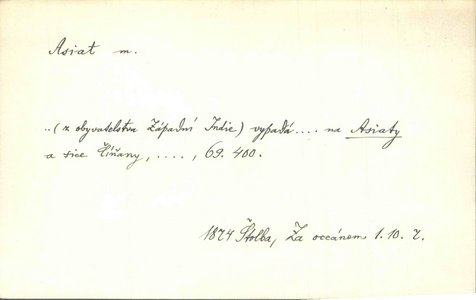 Asiat m.
..(z obyvatelstva Západní Indie) vypadá .... na Asiaty
a sice Číňany, ...., 69.400.
1874 Štolba, Za oceánem 1.10. ř.